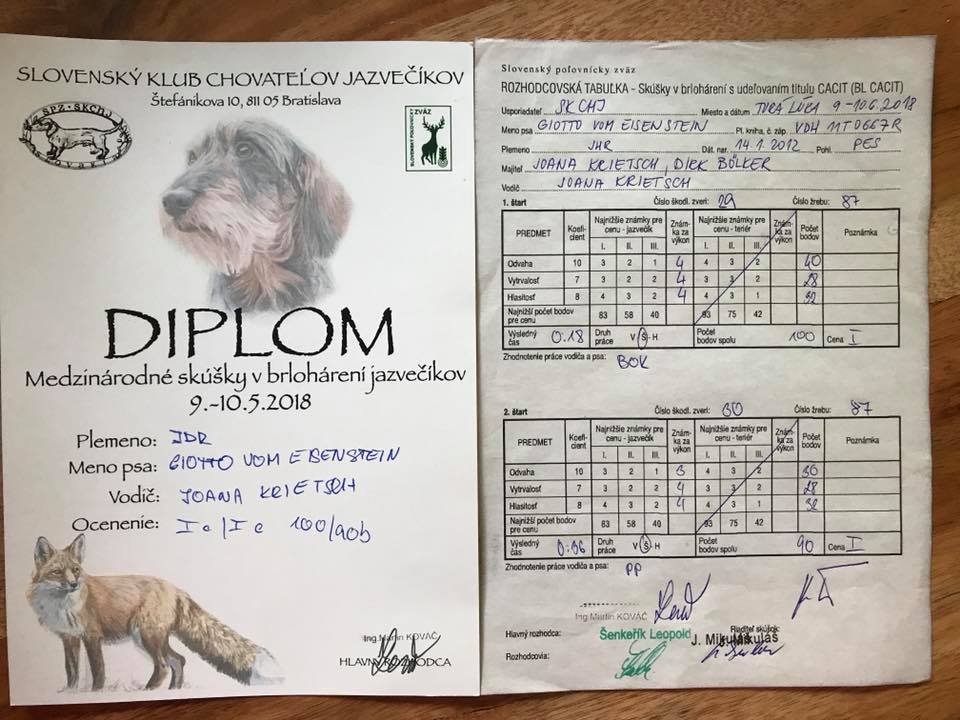 SLOVENSKÝ KLUB CHOVATEĽOV JAZVEČÍKOV
Štefánikova 10, 811 05 Bratislava
SPZ - SKCHJ
SLOVENSKÝ POĽOVNÍCKY ZVÄZ
DIPLOM
Medzinárodné skúšky v brlohárení jazvečíkov
9.-10.5.2018
Plemeno: JDR
Meno psa: GIOTTO VOM EISENSTEIN
Vodič: JOANA KRIETSCH
Ocenenie: I c/I c 100/90b
Ing. Martin KOVÁČ
HLAVNÝ ROZHODCA
Slovenský poľovnícky zväz
ROZHODCOVSKÁ TABUĽKA - Skúšky v brlohárení s udeľovaním titulu CACIT (BL CACIT)
Usporiadateľ SKCHJ Miesto a dátum TURÁ LÚKA 9-10.6.2018
Meno psa GIOTTO VOM EISENSTEIN Pl. kniha, č. záp. VDH 11T0667R
Plemeno JHR Dát. nar. 14.1.2012 Pohl. PES
Majiteľ JOANA KRIETSCH, DIRK BÜLKER
Vodič JOANA KRIETSCH
1. štart Číslo škodl. zveri: 29 Číslo žrebu: 87
PREDMET Koeficient Najnižšie známky pre cenu - jazvečík Známka za výkon Najnižšie známky pre cenu - teriér Známka za výkon Počet bodov Poznámka
I. II. III. I. II. III.
Odvaha 10 3 2 1 4 4 3 2 40
Vytrvalosť 7 3 2 1 4 4 3 2 28
Hlasitosť 8 4 3 2 4 4 3 1 32
Najnižší počet bodov pre cenu 83 58 40 93 75 42
Výsledný čas 0.18 Druh práce V-Š-H Počet bodov spolu 100 Cena I
Zhodnotenie práce vodiča a psa: BOK
2. štart Číslo škodl. zveri: 30 Číslo žrebu: 87
PREDMET Koeficient Najnižšie známky pre cenu - jazvečík Známka za výkon Najnižšie známky pre cenu - teriér Známka za výkon Počet bodov Poznámka
I. II. III. I. II. III.
Odvaha 10 3 2 1 3 4 3 2 30
Vytrvalosť 7 3 2 1 4 4 3 2 28
Hlasitosť 8 4 3 2 4 4 3 1 32
Najnižší počet bodov pre cenu 83 58 40 93 75 42
Výsledný čas 0:06 Druh práce V-Š-H Počet bodov spolu 90 Cena I
Zhodnotenie práce vodiča a psa: PP
Ing. Martin KOVÁČ
Hlavný rozhodca: Šenkeřík Leopold Riaditeľ skúšok:
J. Mikuláš
Rozhodcovia: